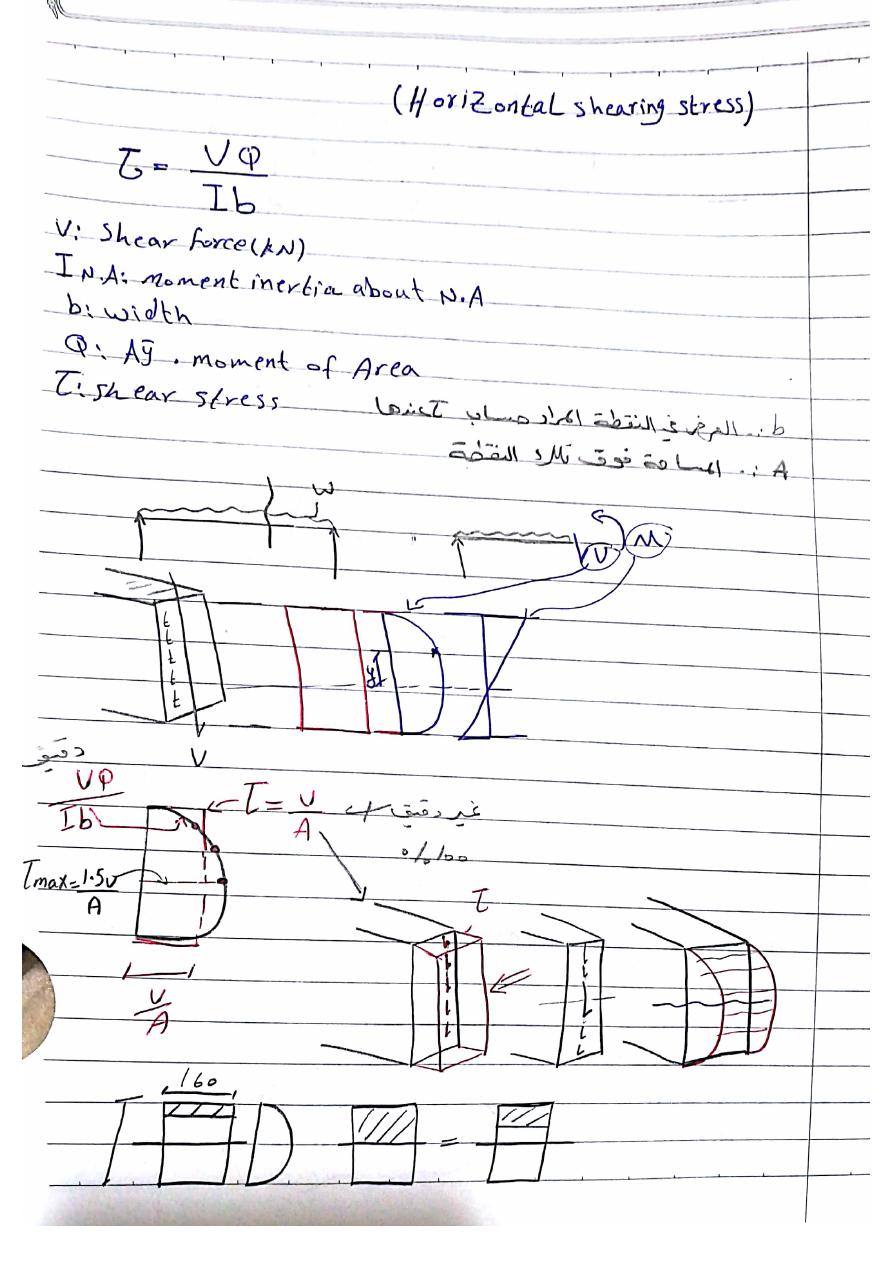 (Horizontal shearing stress)
τ = VQ / Ib
V: shear force (kN)
I N.A: moment inertia about N.A
b: width
Q: Aȳ . moment of Area
τ: shear stress
b: العرض في النقطة المراد حساب τ عندها
A: المساحة فوق تلك النقطة
W
V
M
t
t
t
t
t
ȳ
V
دقيق
VQ / Ib
τ = V / A
غير دقيق
%100
τmax = 1.5V / A
τ
V / A
160
=